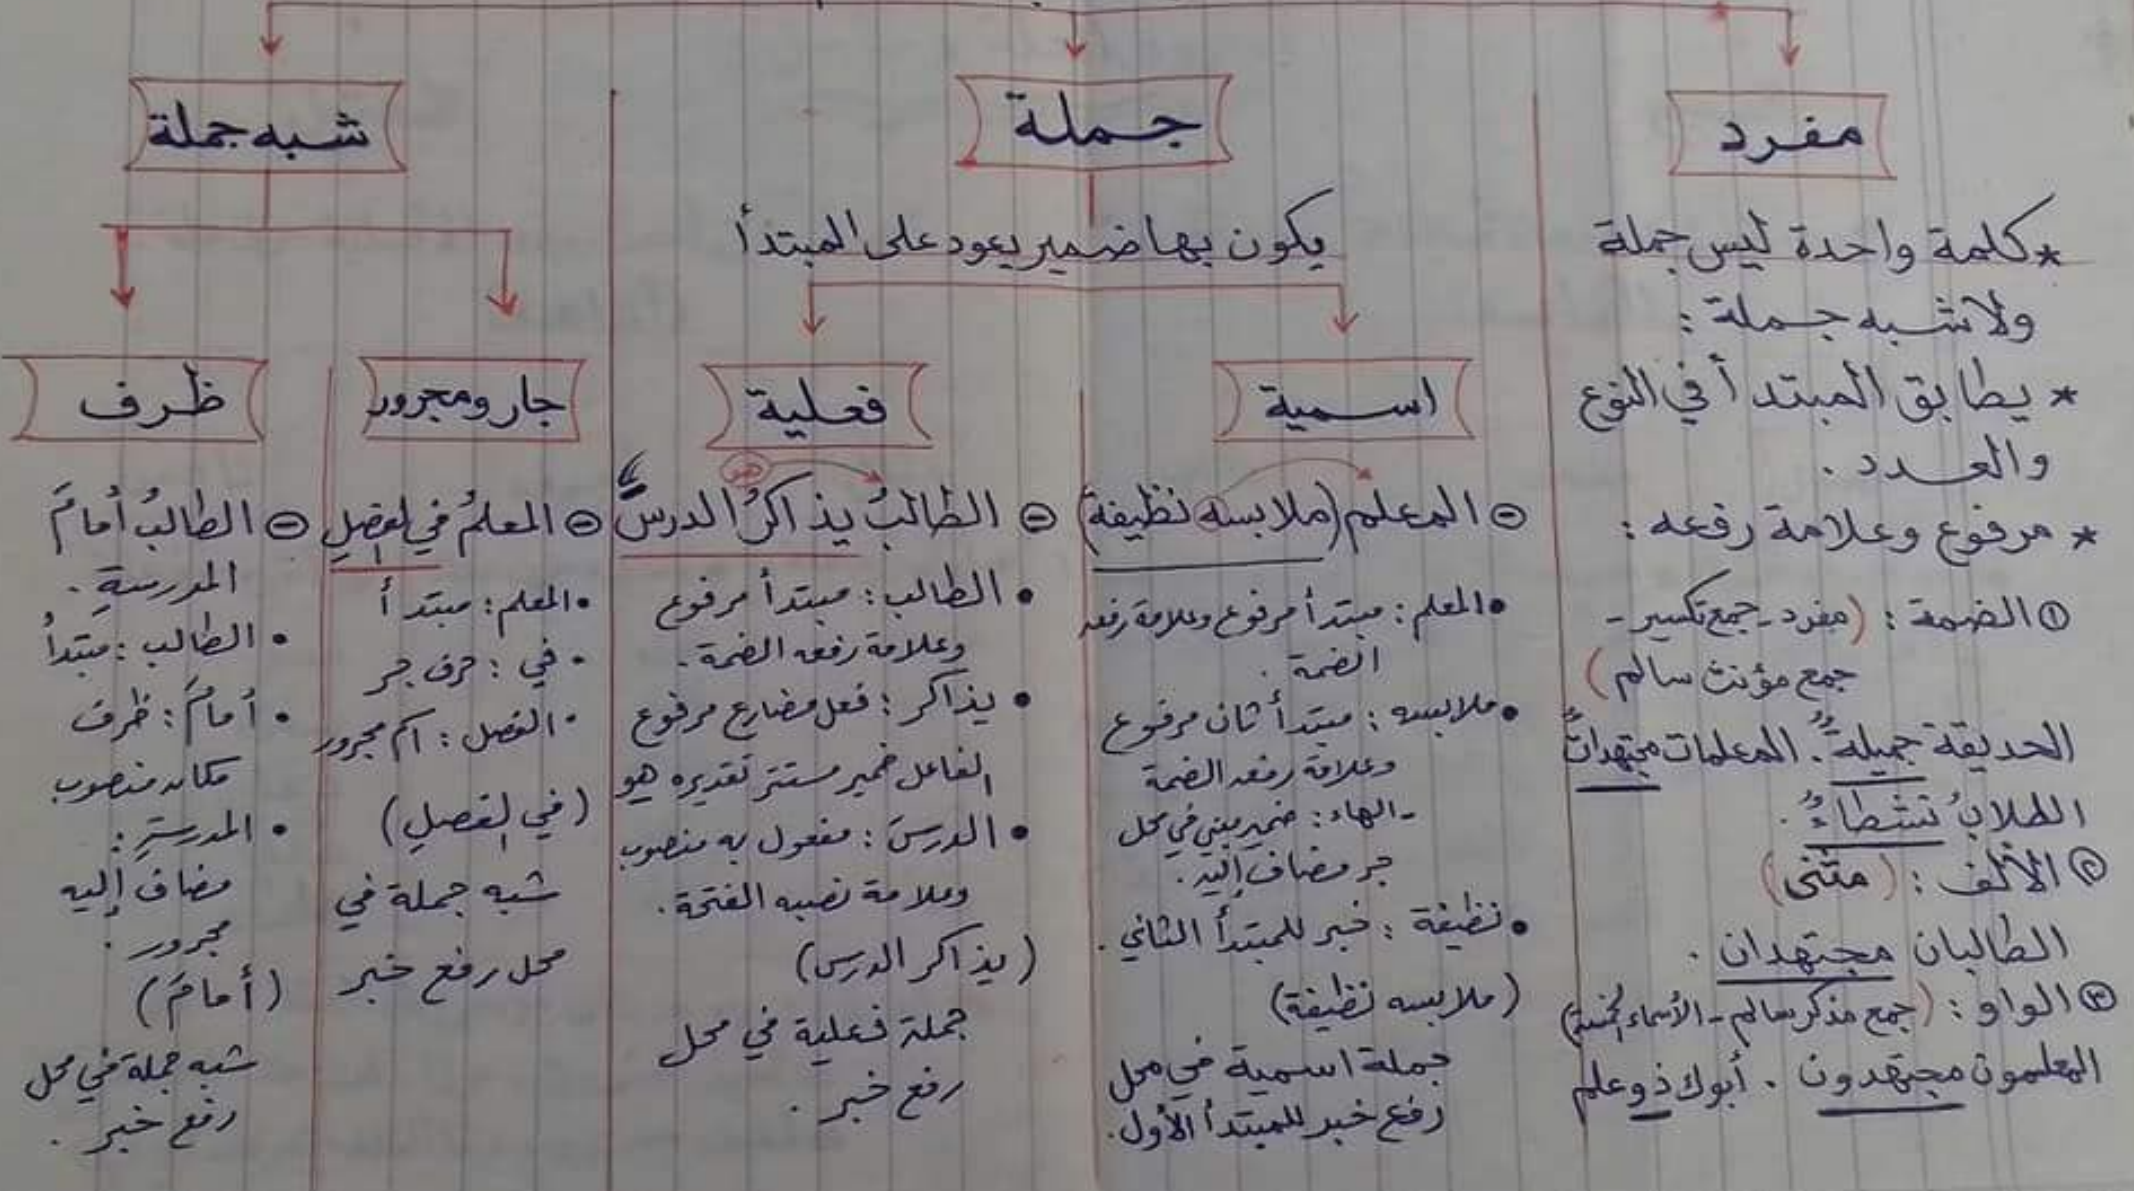 مفرد
*كلمة واحدة ليس جملة
ولا شبه جملة :
* يطابق المبتدأ في النوع
والعدد .
* مرفوع وعلامة رفعه :
① الضمة : (مفرد - جمع تكسير -
جمع مؤنث سالم)
الحديقة جميلةٌ . المعلمات مجتهداتٌ
الطلابُ نشطاءُ .
② الألف : (مثنى)
الطالبان مجتهدان .
③ الواو : (جمع مذكر سالم - الأسماء الخمسة)
المعلمون مجتهدون . أبوك ذو علم
جملة
يكون بها ضمير يعود على المبتدأ
اسمية
⊖ المعلم (ملابسه نظيفة)
• المعلم : مبتدأ مرفوع وعلامة رفعه
الضمة .
• ملابسه : مبتدأ ثان مرفوع
وعلامة رفعه الضمة
- الهاء : ضمير مبني في محل
جر مضاف إليه .
• نظيفة : خبر للمبتدأ الثاني .
(ملابسه نظيفة)
جملة اسمية في محل
رفع خبر للمبتدأ الأول .
فعلية
هو
⊖ الطالبُ يذاكرُ الدرسَ
• الطالب : مبتدأ مرفوع
وعلامة رفعه الضمة .
• يذاكر : فعل مضارع مرفوع
الفاعل ضمير مستتر تقديره هو
• الدرسَ : مفعول به منصوب
وعلامة نصبه الفتحة .
(يذاكر الدرس)
جملة فعلية في محل
رفع خبر .
شبه جملة
جار ومجرور
⊖ المعلمُ في الفصلِ
• المعلم : مبتدأ
• في : حرف جر
• الفصل : اسم مجرور
(في الفصلِ)
شبه جملة في
محل رفع خبر
ظرف
⊖ الطالبُ أمامَ
المدرسةِ .
• الطالب : مبتدأ
• أمامَ : ظرف
مكان منصوب
• المدرسةِ :
مضاف إليه
مجرور .
(أمامَ)
شبه جملة في محل
رفع خبر .